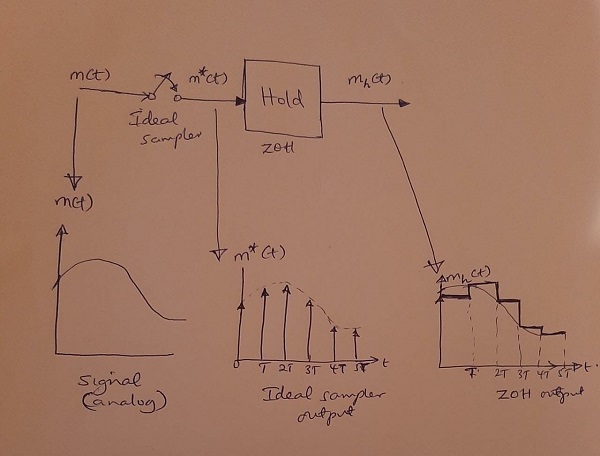 m(t)
m*(t)
Hold
mₕ(t)
Ideal
sampler
ZOH
m(t)
m*(t)
mₕ(t)
0 T 2T 3T 4T 5T t
T 2T 3T 4T 5T t
Signal
(analog)
Ideal sampler
output
ZOH output